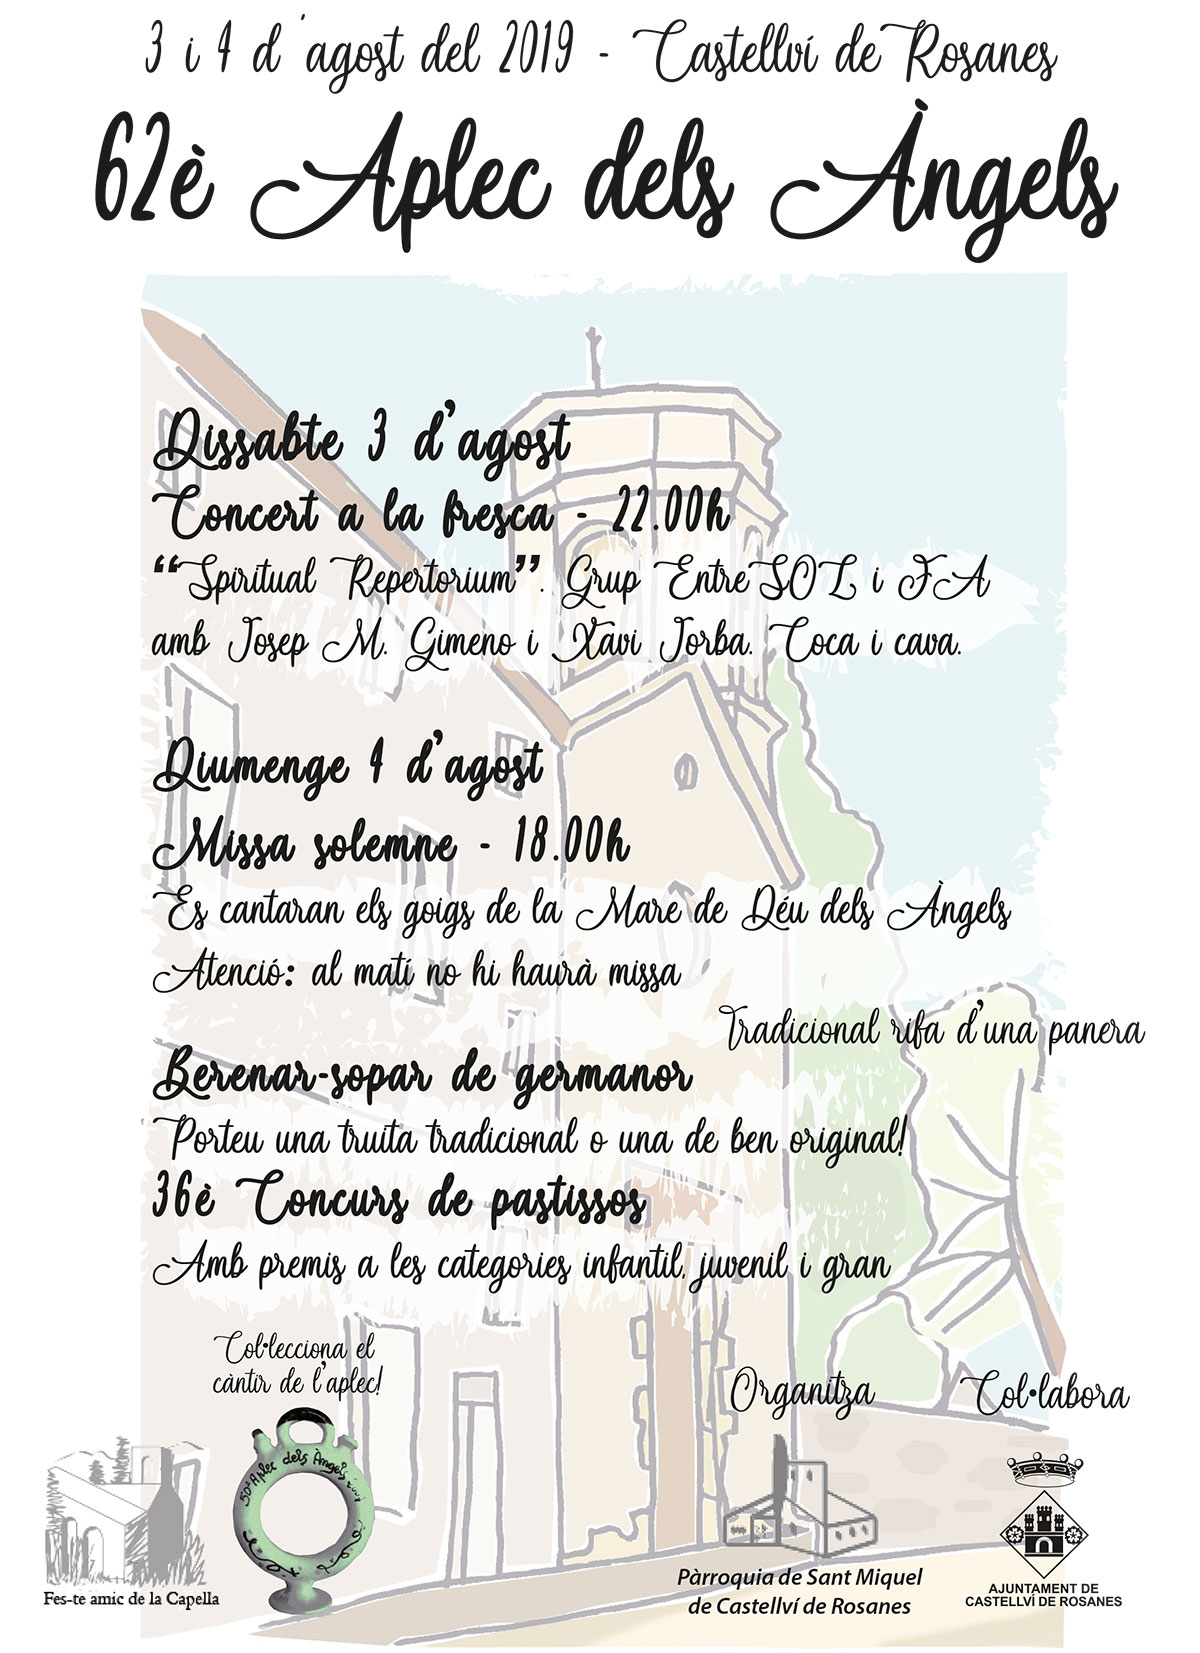 3 i 4 d'agost del 2019 - Castellví de Rosanes
62è Aplec dels Àngels
Dissabte 3 d'agost
Concert a la fresca - 22.00h
“Spiritual Repertorium”. Grup EntreSOL i FA
amb Josep M. Gimeno i Xavi Jorba. Coca i cava.
Diumenge 4 d'agost
Missa solemne - 18.00h
Es cantaran els goigs de la Mare de Déu dels Àngels
Atenció: al matí no hi haurà missa
Tradicional rifa d'una panera
Berenar-sopar de germanor
Porteu una truita tradicional o una de ben original!
36è Concurs de pastissos
Amb premis a les categories infantil, juvenil i gran
Col·lecciona el
càntir de l'aplec!
50è Aplec dels Àngels
Fes-te amic de la Capella
Organitza
Pàrroquia de Sant Miquel
de Castellví de Rosanes
Col·labora
AJUNTAMENT DE
CASTELLVÍ DE ROSANES